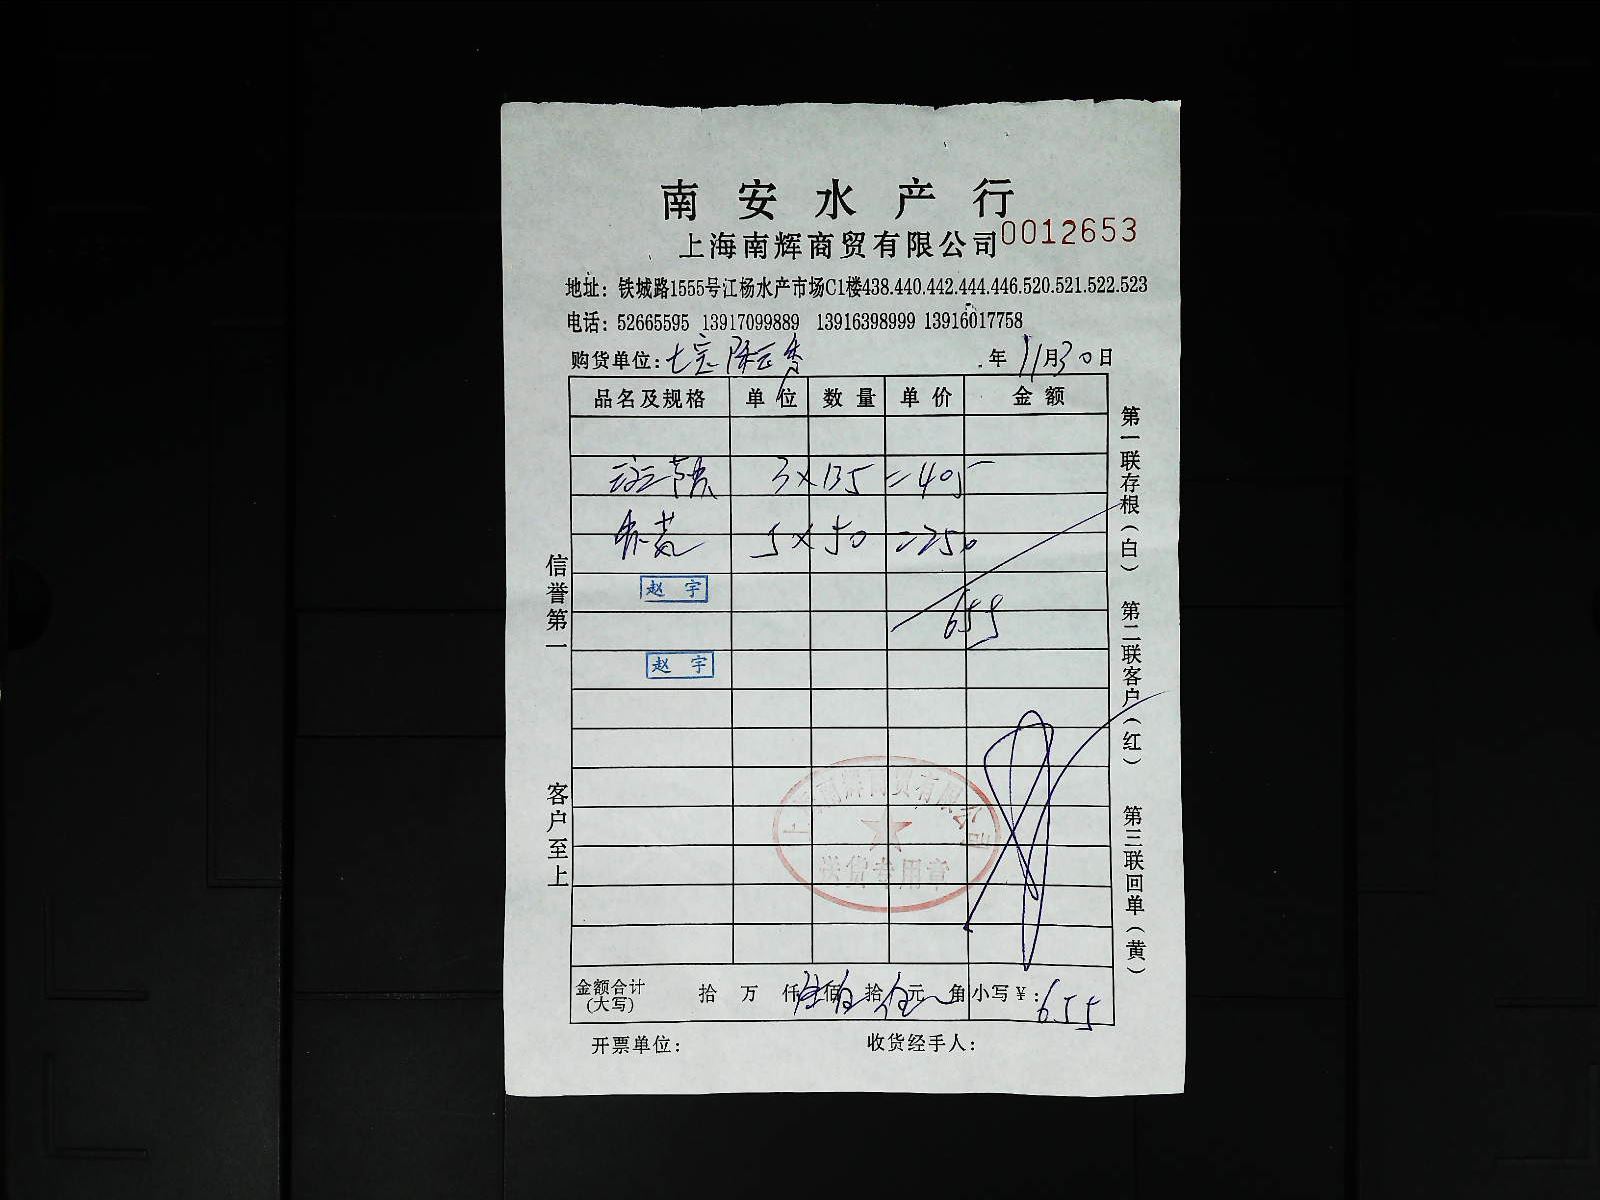 南安水产行
上海南辉商贸有限公司 0012653
地址：铁城路1555号江杨水产市场C1楼438.440.442.444.446.520.521.522.523
电话：52665595 13917099889 13916398999 13916017758
购货单位：七宝 年 11月30日
品名及规格 单位 数量 单价 金额
3×135=405
5×50=250
赵宇
655
赵宇
上海南辉商贸有限公司
送货专用章
金额合计(大写) 拾 万 仟 佰 拾 元 角 小写￥：655
开票单位： 收货经手人：
信誉第一 客户至上
第一联存根(白) 第二联客户(红) 第三联回单(黄)